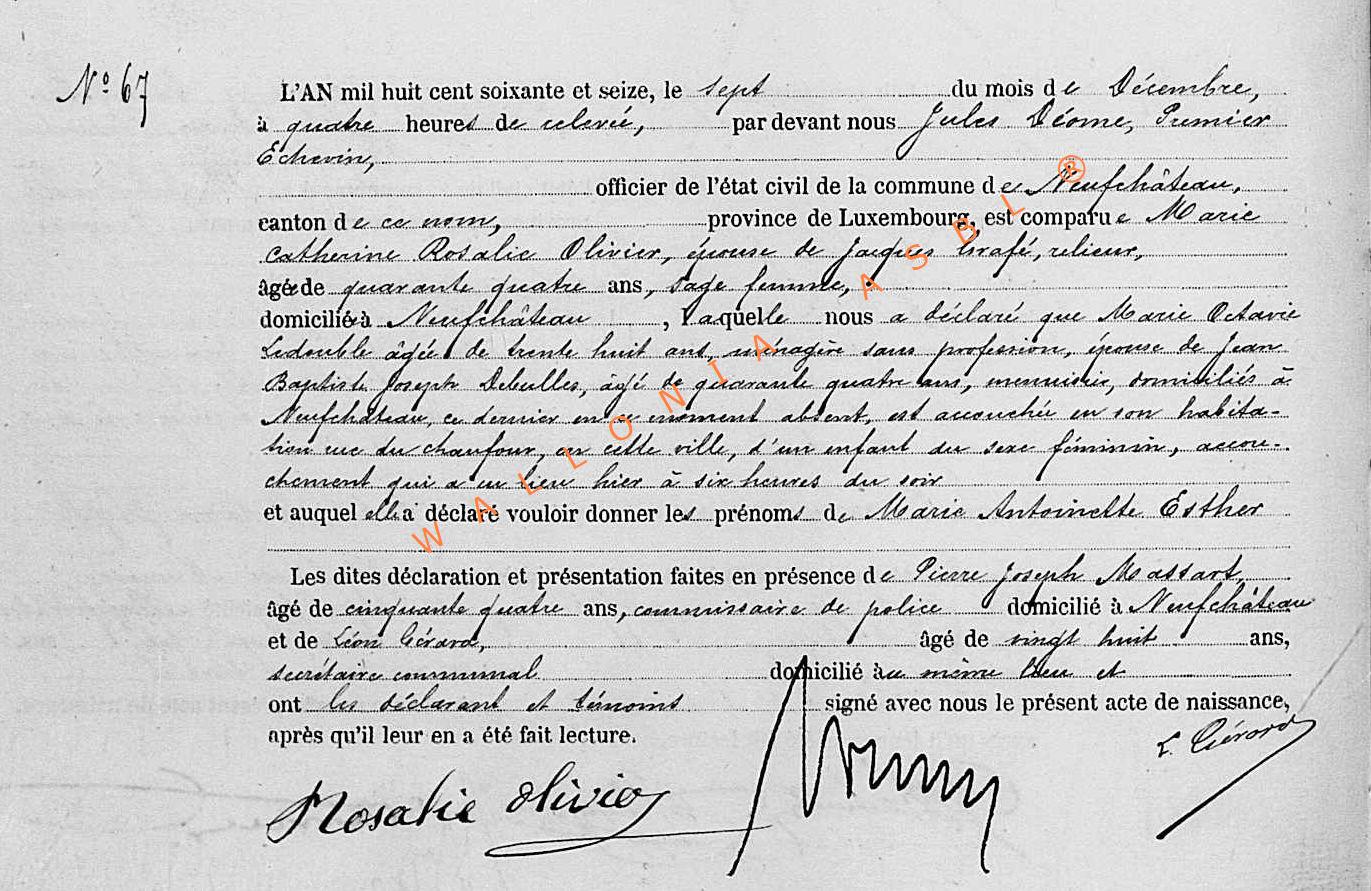 N° 67
L'AN mil huit cent soixante et seize, le sept du mois de Décembre,
à quatre heures de relevée, par devant nous Jules Déome, Premier
Echevin,
officier de l'état civil de la commune de Neufchâteau,
canton de ce nom, province de Luxembourg, est comparue Marie
Catherine Rosalie Olivier, épouse de Jacques Grafé, relieur,
âgée de quarante quatre ans, sage femme,
domiciliée à Neufchâteau, laquelle nous a déclaré que Marie Octavie
Ledouble âgée de trente huit ans, ménagère sans profession, épouse de Jean
Baptiste Joseph Debulles, âgé de quarante quatre ans, menuisier, domiciliés à
Neufchâteau, ce dernier en ce moment absent, est accouchée en son habita-
tion rue du chaufour, en cette ville, d'un enfant du sexe féminin, accou-
chement qui a eu lieu hier à six heures du soir
et auquel elle a déclaré vouloir donner les prénoms de Marie Antoinette Esther
Les dites déclaration et présentation faites en présence de Pierre Joseph Massart,
âgé de cinquante quatre ans, commissaire de police domicilié à Neufchâteau
et de Léon Gérard, âgé de vingt huit ans,
secrétaire communal domicilié au même lieu et
ont les déclarant et témoins signé avec nous le présent acte de naissance,
après qu'il leur en a été fait lecture.
L. Gérard
Rosalie Olivier
WALLONIA ASBL ®